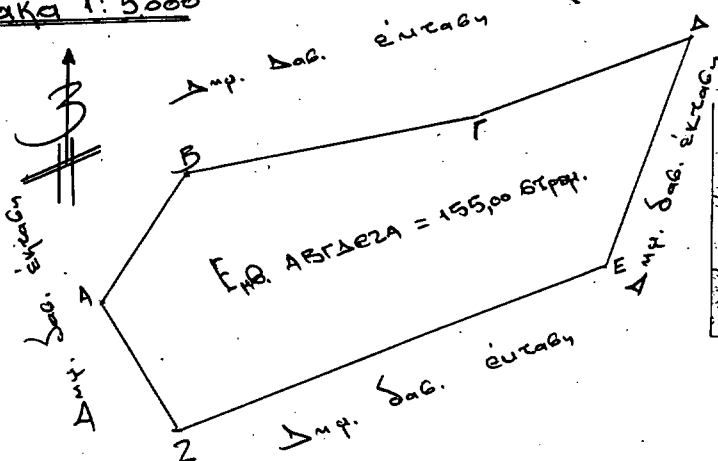 1: 5.000
Δημ. Δας. έκταση
Δ
Γ
Β
Δημ. δας. έκταση
Εμβ. ΑΒΓΔΕΖΑ = 155,00 στρεμ.
Α
Δημ. δας. έκταση
Ε
Δημ. δας. έκταση
Ζ